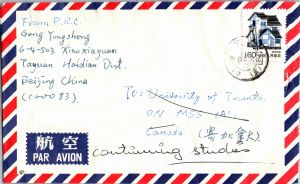 From P.R.C.
Gong Yongsheng
Xiaoxiaguan
Tayuan Haidian Dist.
Beijing China
(100083)
To: University of Toronto
ON M5S 1A1
Canada (加拿大)
continuing studies
航空
PAR AVION